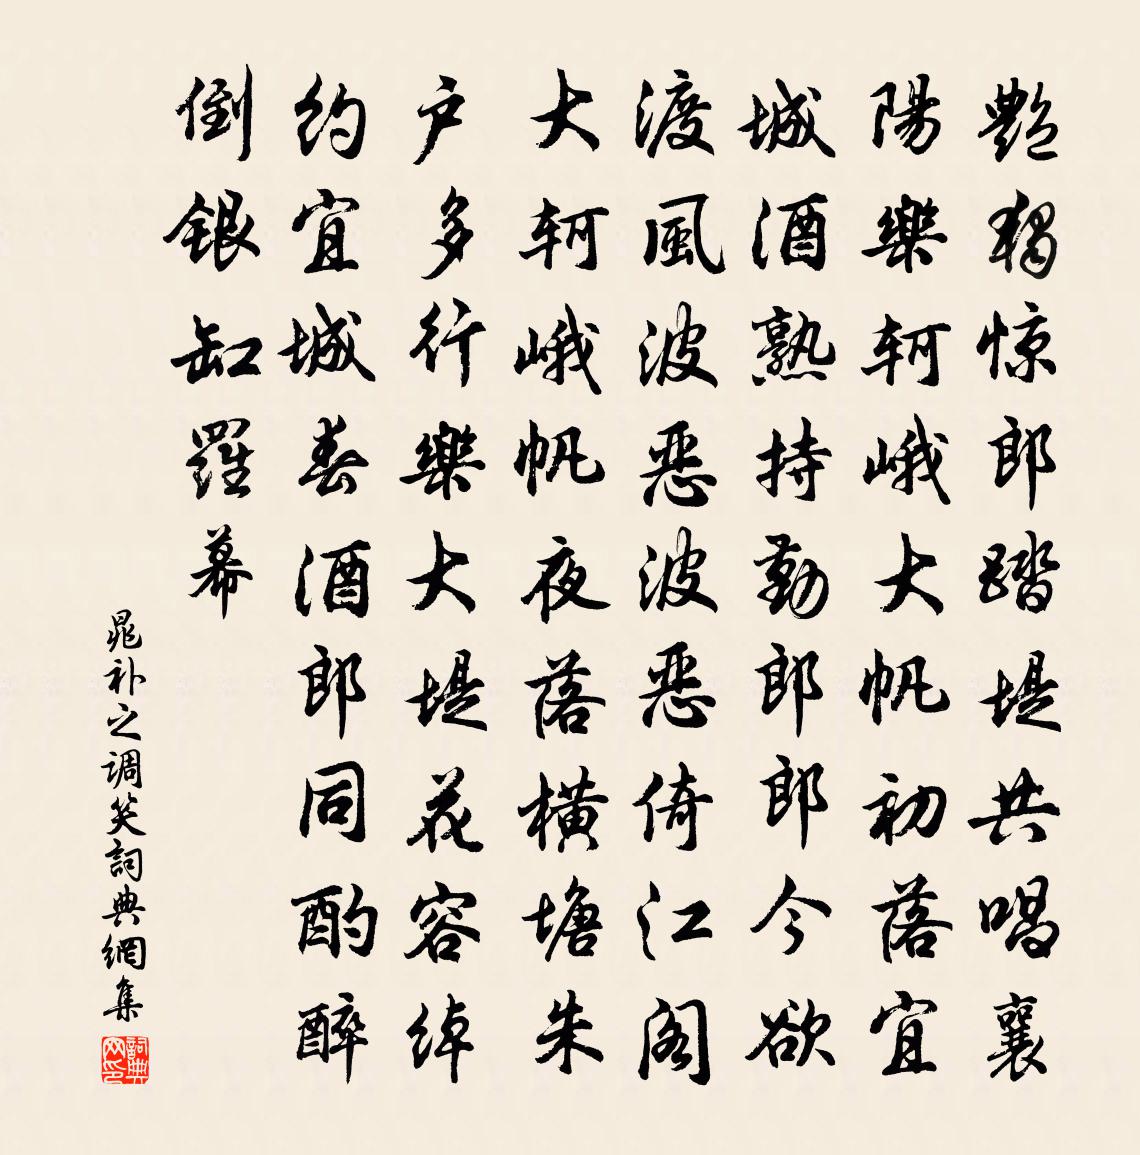 艷獨惊郎踏堤共唱襄
陽樂軻峨大帆初落宜
城酒熟持勤郎郎今欲
渡風波惡波惡倚江阁
大軻峨帆夜落橫塘朱
户多行樂大堤花容绰
约宜城春酒郎同酌醉
倒銀缸羅幕
晁补之调笑詞典網集
詞典网印